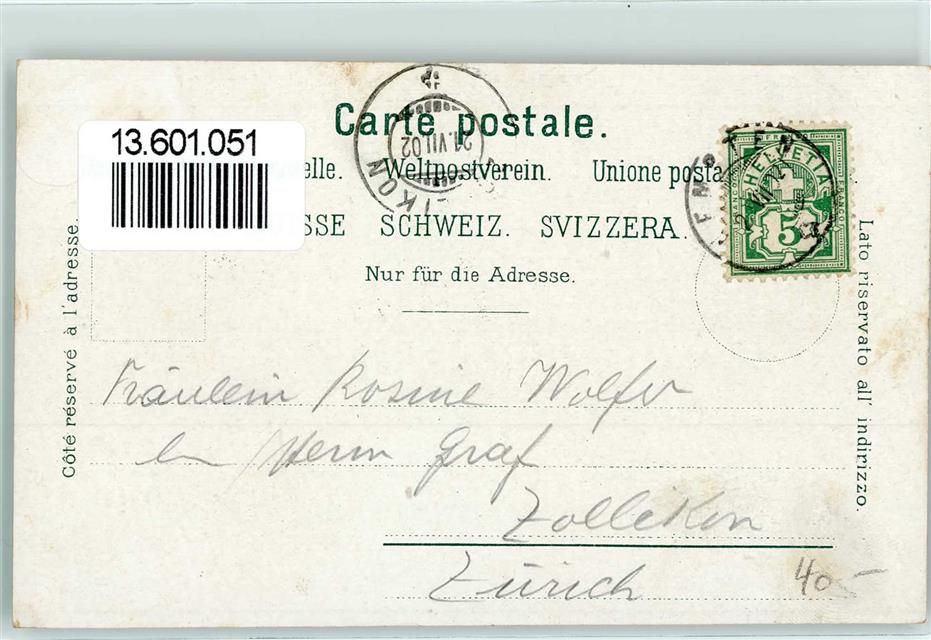 13.601.051
Carte postale.
elle. Weltpostverein. Unione posta
SSE SCHWEIZ. SVIZZERA.
Nur für die Adresse.
Côté réservé à l'adresse.
Lato riservato all' indirizzo.
IKON
21.VII.02
FRANCO
HELVETIA
5
Fräulein Rosine Wolfer
Herrn Graf
Zollikon
Zürich
40.-